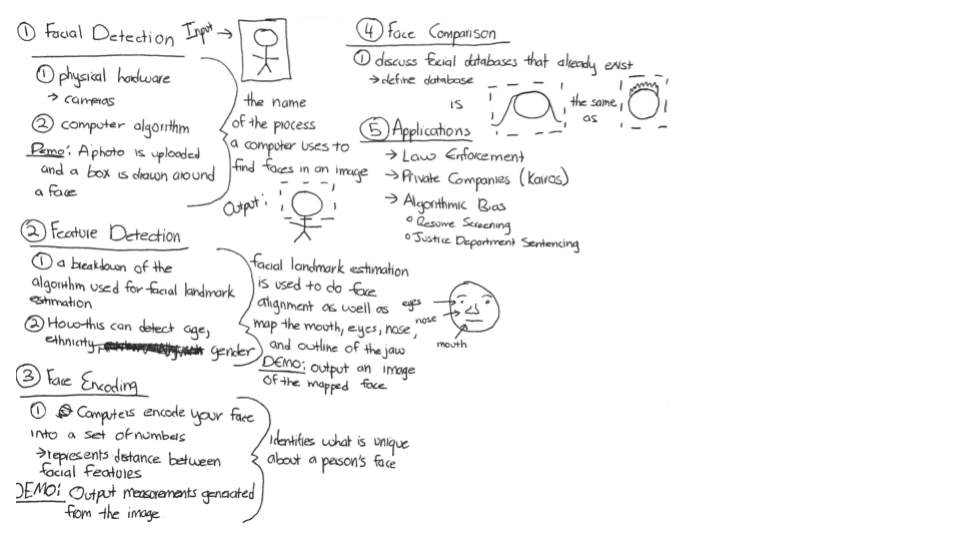 ① Facial Detection
Input →
① physical hardware
→ cameras
② computer algorithm
Demo: A photo is uploaded
and a box is drawn around
a face
the name
of the process
a computer uses to
find faces in an image
Output:
② Feature Detection
① a breakdown of the
algorithm used for facial landmark
estimation
② How this can detect age,
ethnicity, gender
facial landmark estimation
is used to do face
alignment as well as
map the mouth, eyes, nose,
and outline of the jaw
DEMO: output an image
of the mapped face
eyes
nose
mouth
③ Face Encoding
① Computers encode your face
into a set of numbers
→ represents distance between
facial features
DEMO: Output measurements generated
from the image
Identifies what is unique
about a person's face
④ Face Comparison
① discuss facial databases that already exist
→ define database
is
the same
as
⑤ Applications
→ Law Enforcement
→ Private Companies (Kairos)
→ Algorithmic Bias
° Resume Screening
° Justice Department Sentencing